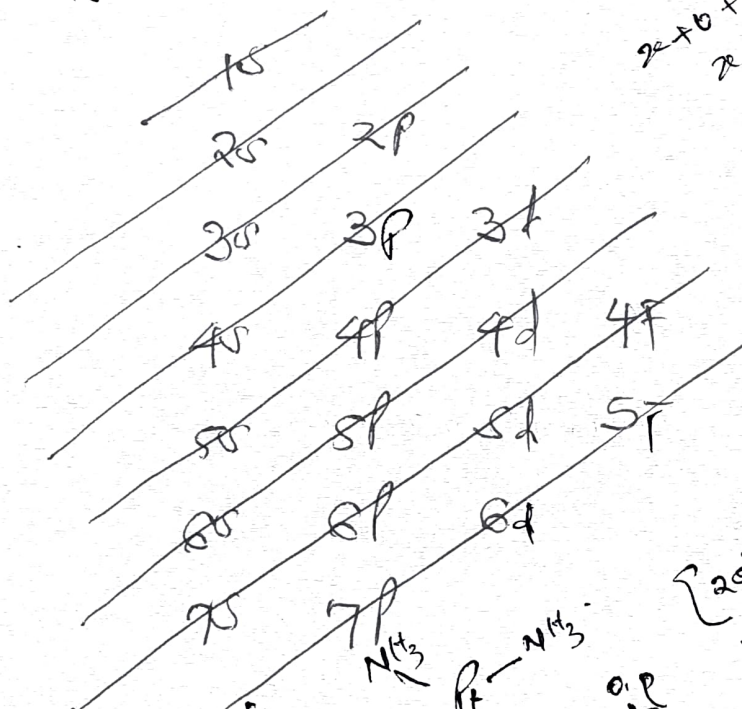 x+0+
x
1s
2s 2p
3s 3p 3d
4s 4p 4d 4f
5s 5p 5d 5f
6s 6p 6d
7s 7p
[20
NH3 Pt NH3
O.P